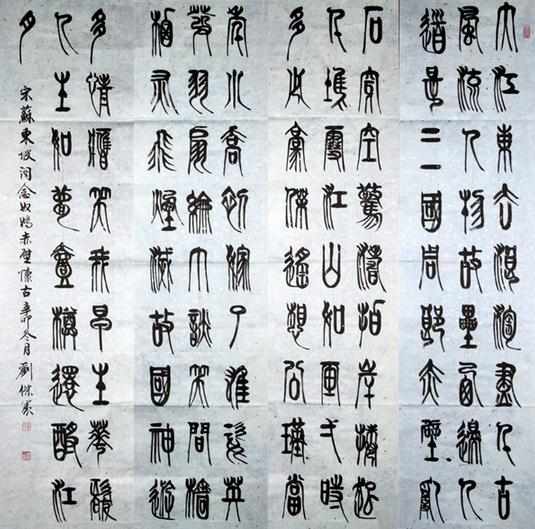 大江東去浪淘盡千古
風流人物故壘西邊人
道是三國周郎赤壁亂
石穿空驚濤拍岸捲起
千堆雪江山如畫弌時
多少豪傑遙想公瑾當
年小喬初嫁了雄姿英
發羽扇綸巾談笑間檣
櫓灰飛煙滅故國神遊
多情應笑我早生華髮
人生如夢壹樽還酹江
月
宋蘇東坡詞念奴嬌赤壁懷古辛卯冬月劉傑篆